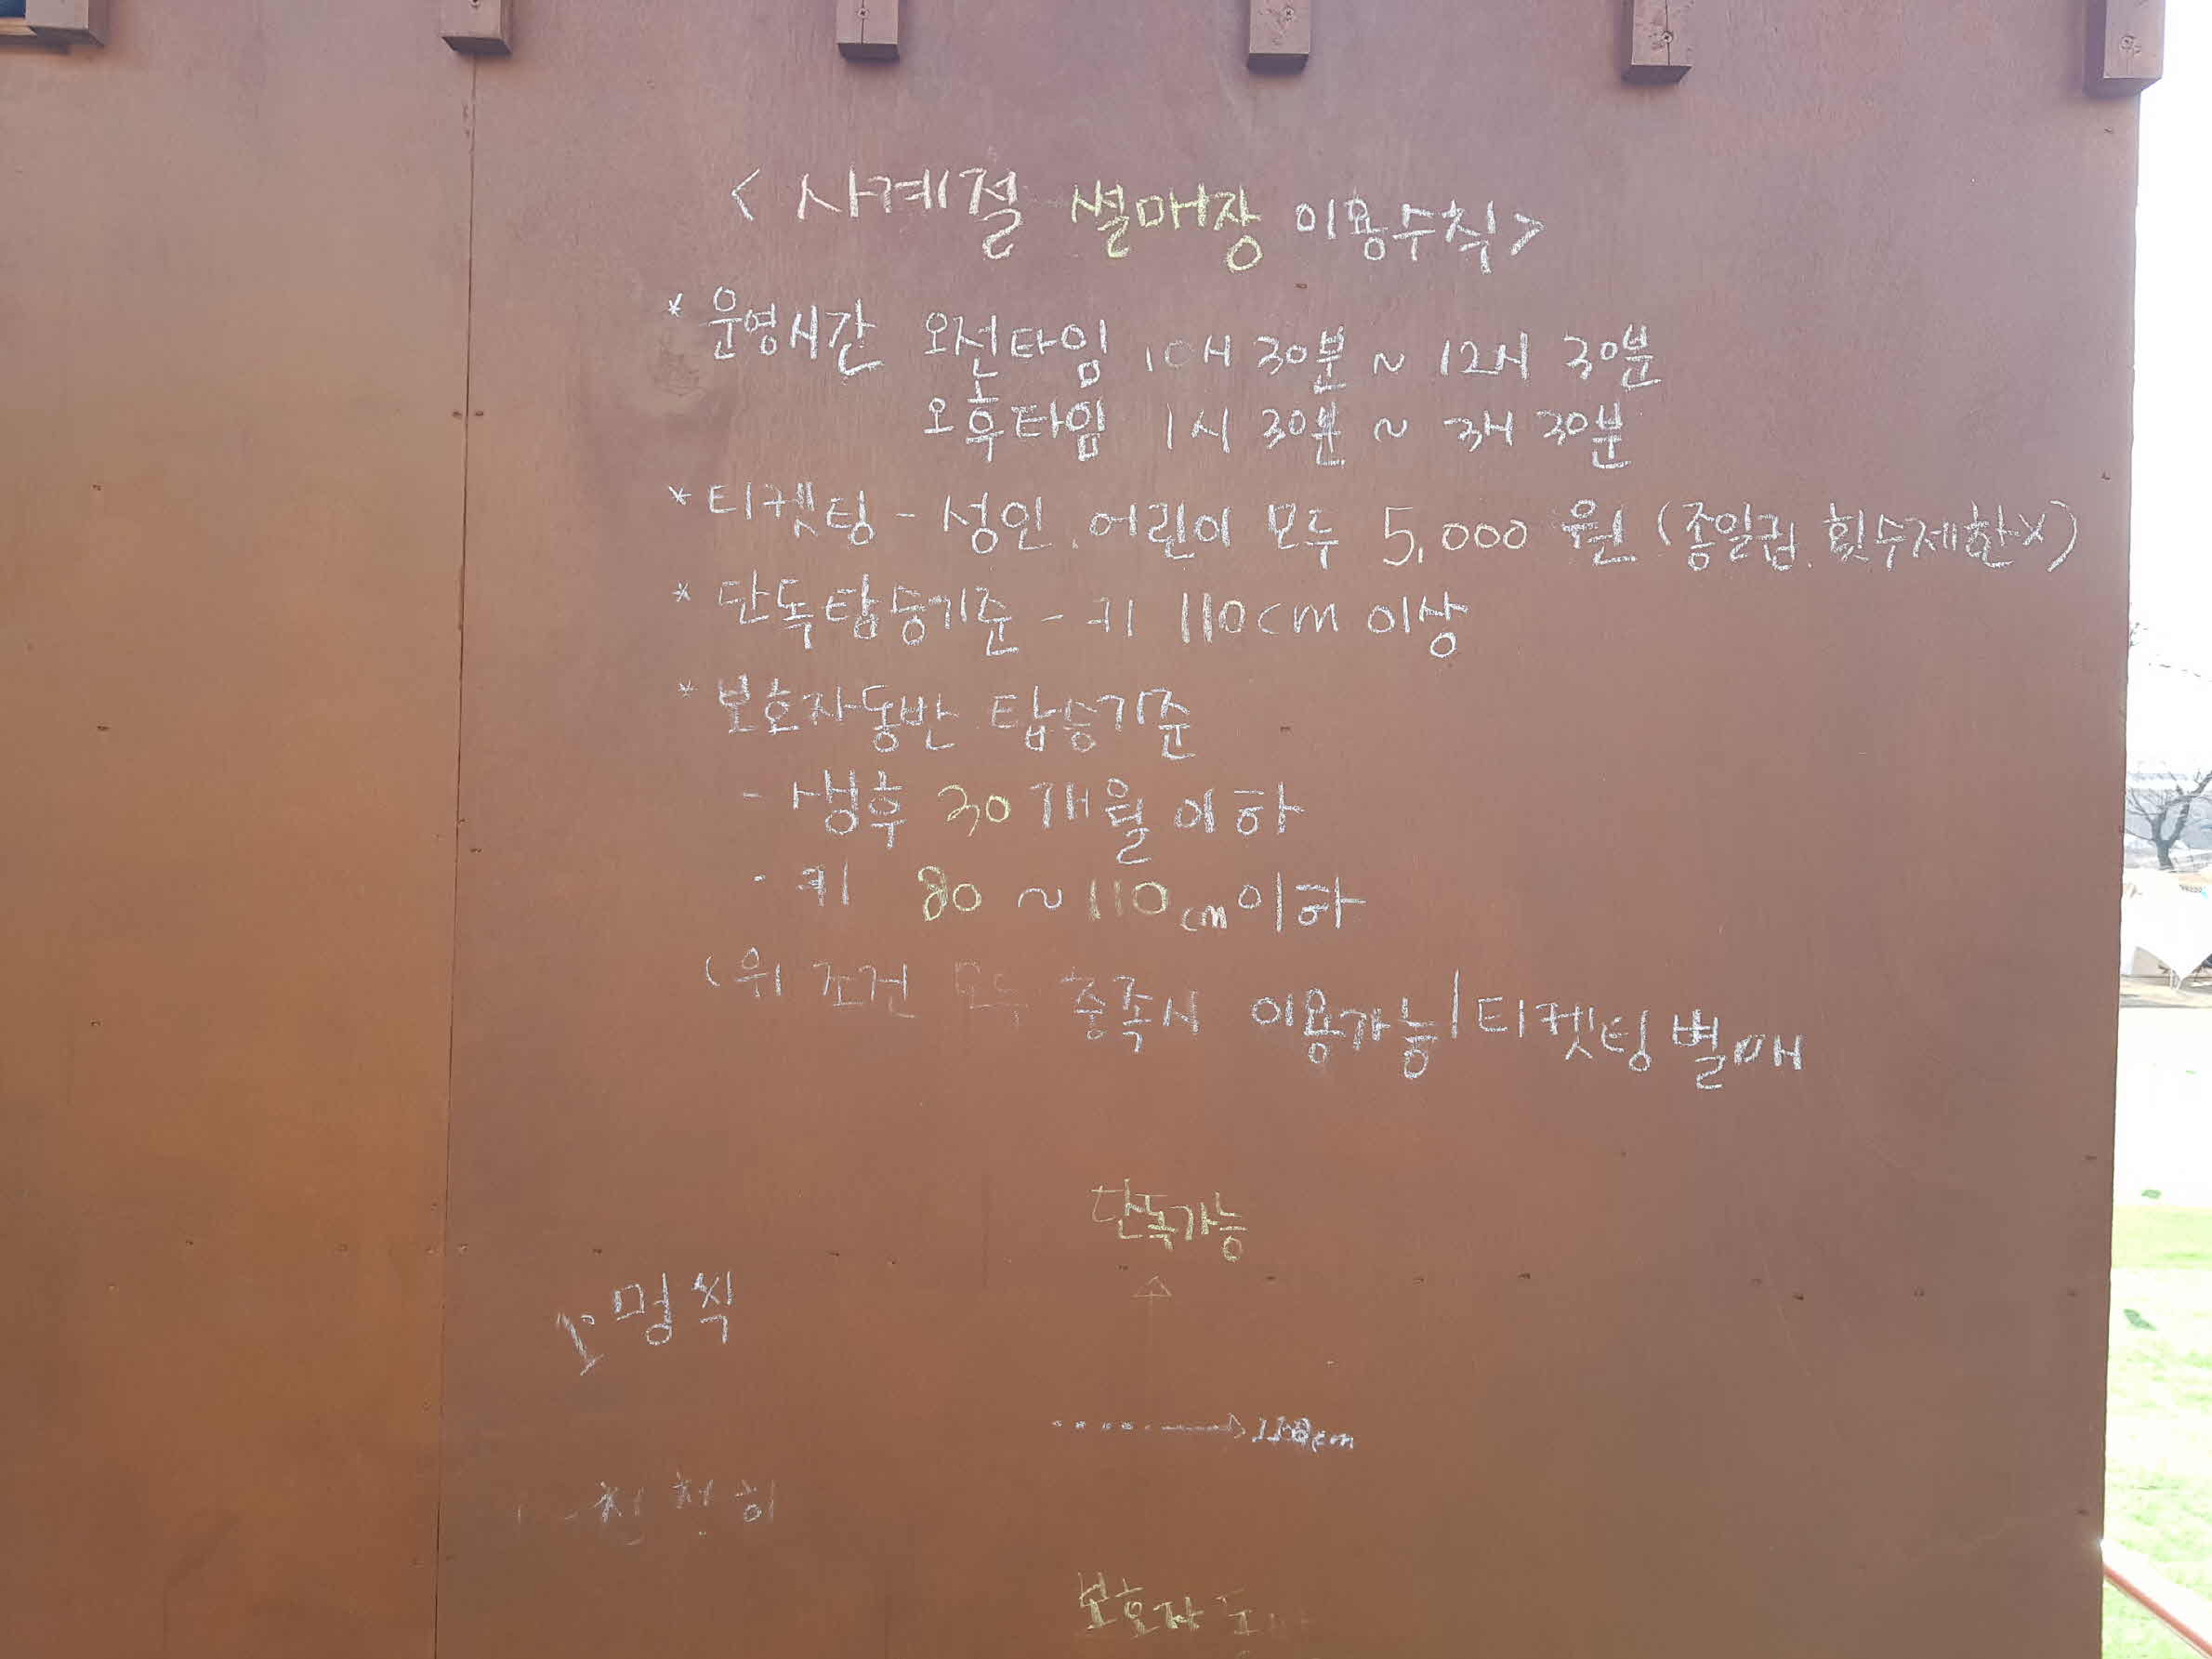 < 사계절 썰매장 이용수칙 >
* 운영시간 오전타임 10시 30분 ~ 12시 30분
오후타임 1시 30분 ~ 3시 30분
* 티켓팅 - 성인, 어린이 모두 5,000 원 (종일권, 횟수제한X)
* 단독탑승기준 - 키 110cm 이상
* 보호자동반 탑승기준
- 생후 30개월 이하
- 키 80 ~ 110cm이하
(위 조건 모두 충족시 이용가능/티켓팅 별매
단독가능
1명씩
110cm
천천히
보호자 동반